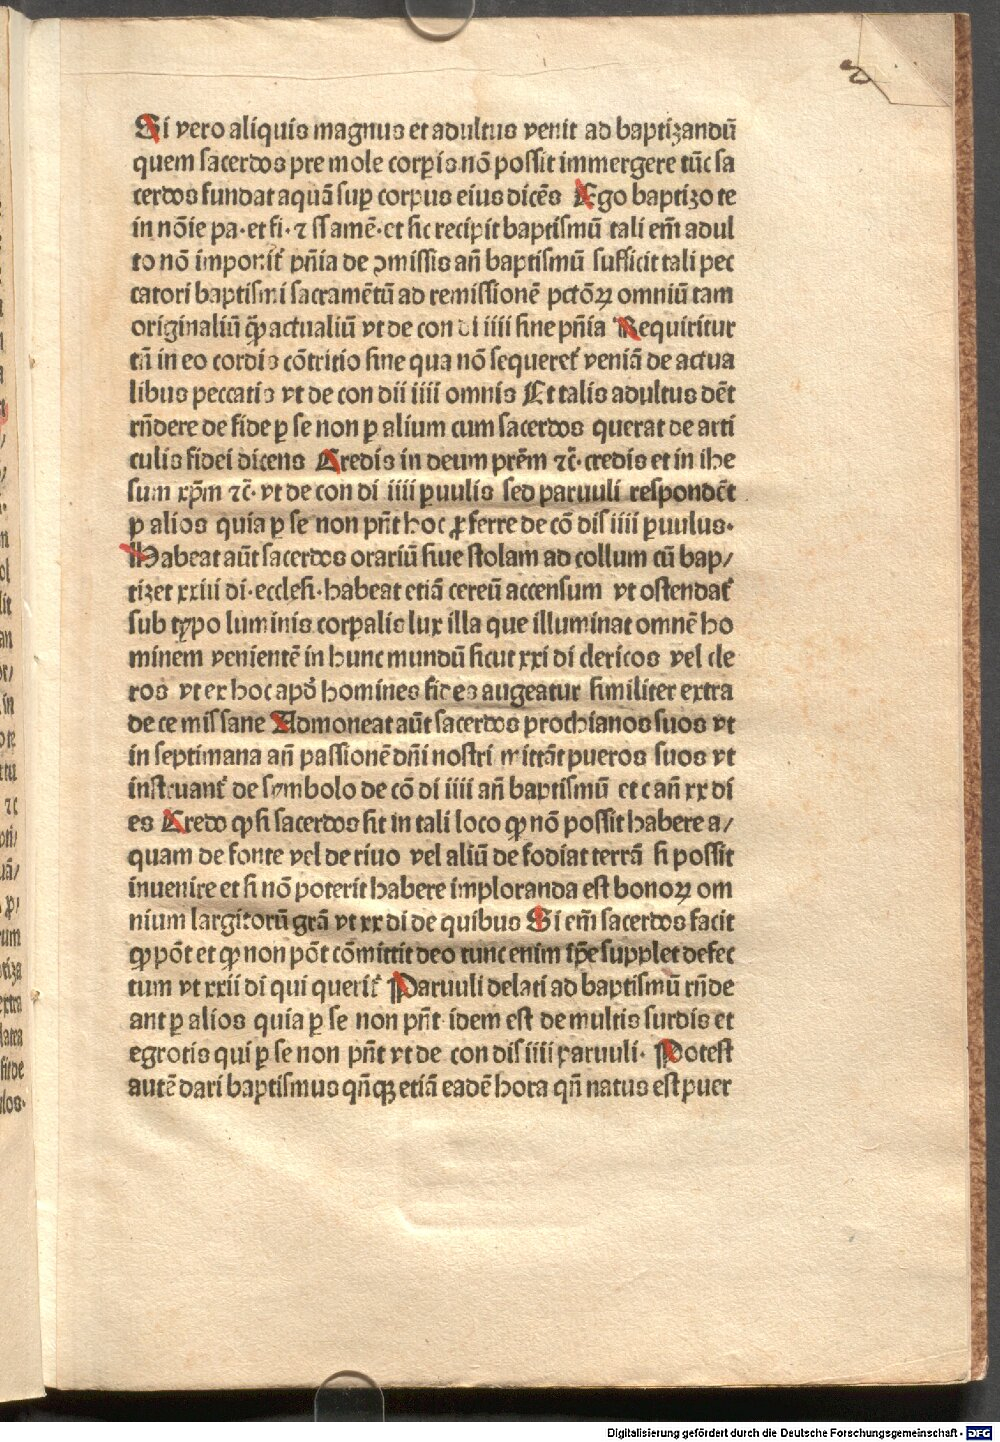 Si vero aliquis magnus et adultus venit ad baptizandū
quem sacerdos pre mole corpis nō possit immergere tūc sa
cerdos fundat aquā sup corpus eius dicēs Ego baptizo te
in nōie pa· et fi· ⁊ ss amē· et sic recipit baptismū tali em̄ adul
to nō imponit᷑ pn̄ia de ꝯmissis añ baptismū sufficit tali pec
catori baptismi sacramētū ad remissionē pctōꝝ omniū tam
originaliū qꝫ actualiū vt de con di iiii sine pn̄ia Requiritur
tn̄ in eo cordis cōtritio sine qua nō sequeret᷑ veniā de actua
libus peccatis vt de con dii iiii omnis Et talis adultus dēt
rn̄dere de fide ꝑ se non ꝑ alium cum sacerdos querat de arti
culis fidei dicens Credis in deum prēm ⁊c̄· credis et in ihe
sum xp̄m ⁊c̄· vt de con di iiii ꝑuulis sed paruuli respondēt
ꝑ alios quia ꝑ se non pn̄t hoc ꝓferre de cō dis iiii ꝑuulus·
Habeat aūt sacerdos orariū siue stolam ad collum cū bap/
tizet xxiii di· ecclesi· habeat etiā cereū accensum vt ostendat᷑
sub typo luminis corpalis lux illa que illuminat omnē ho
minem venientē in hunc mundū sicut xxi di clericos vel cle
ros vt ex hoc apd̓ homines fides augeatur similiter extra
de ce mis sane Admoneat aūt sacerdos prochianos suos vt
in septimana añ passionē dn̄i nostri mittāt pueros suos vt
instruant᷑ de symbolo de cō di iiii añ baptismū et c añ xx di
es Credo ꝙ si sacerdos sit in tali loco ꝙ nō possit habere a/
quam de fonte vel de riuo vel aliū de fodiat terrā si possit
inuenire et si nō poterit habere imploranda est bonoꝝ om
nium largitorū grā vt xx di de quibus Si em̄ sacerdos facit
ꝙ pōt et ꝙ non pōt cōmittit deo tunc enim ip̄e supplet defec
tum vt xxii di qui querit᷑ Paruuli delati ad baptismū rn̄de
ant ꝑ alios quia ꝑ se non pn̄t idem est de multis surdis et
egrotis qui ꝑ se non pn̄t vt de con dis iiii paruuli· Potest
autē dari baptismus qn̄qꝫ etiā eadē hora qn̄ natus est puer
Digitalisierung gefördert durch die Deutsche Forschungsgemeinschaft - DFG